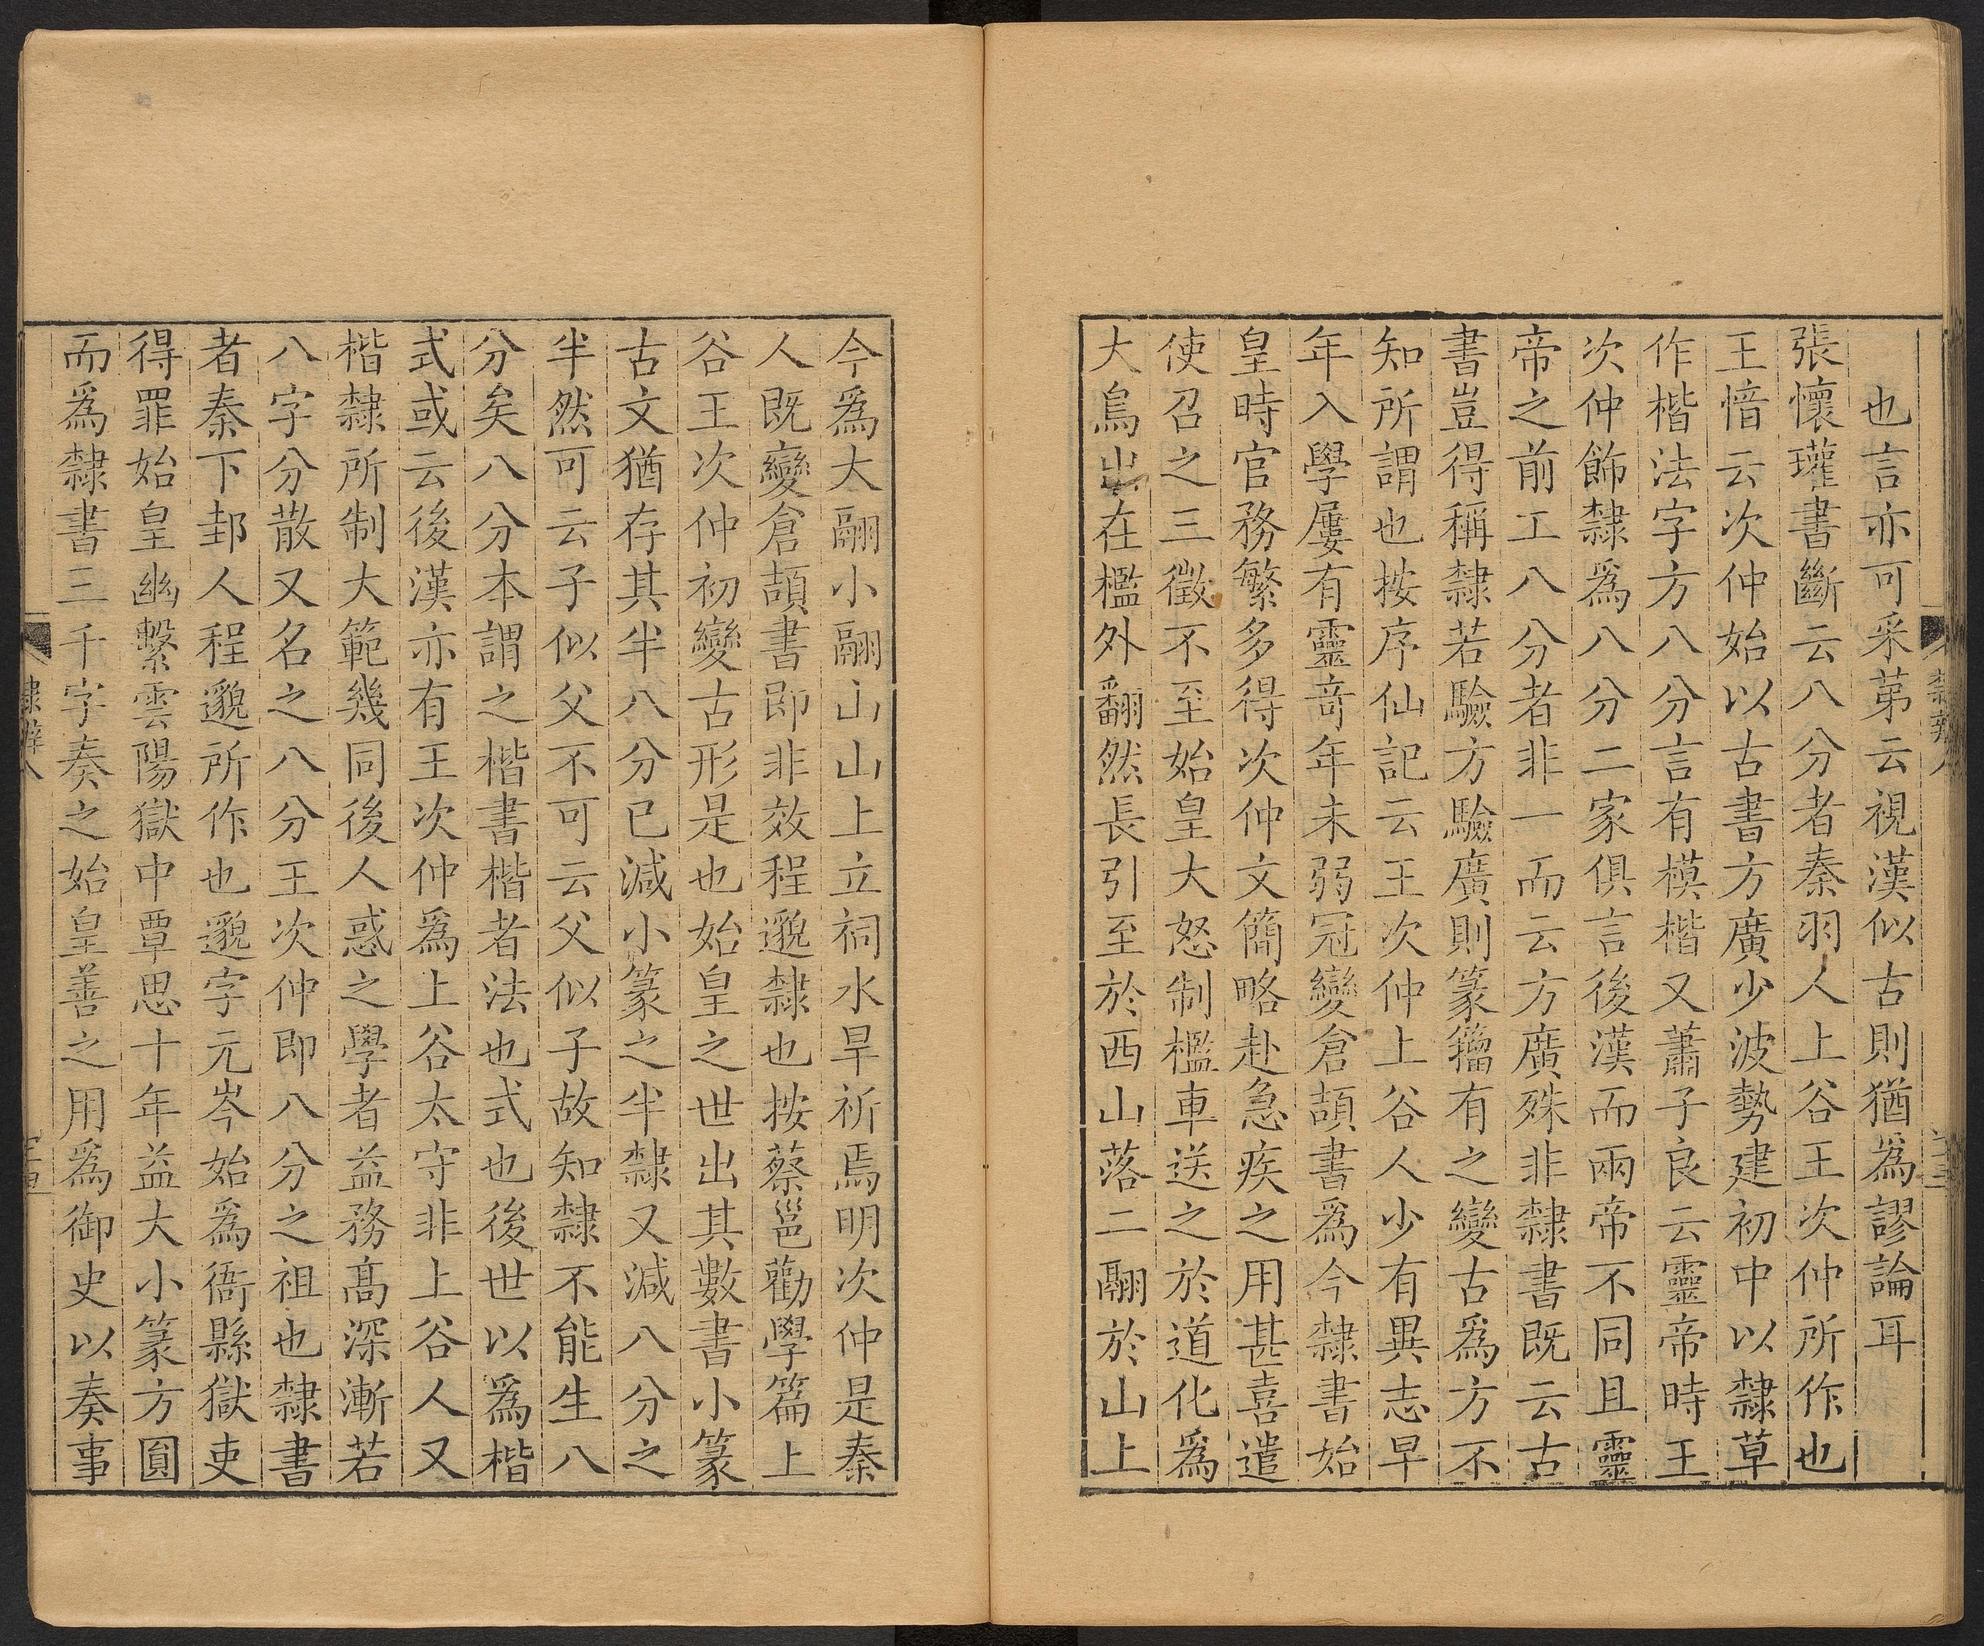 也言亦可采苐云視漢似古則猶為謬論耳
張懷瓘書斷云八分者秦羽人上谷王次仲所作也
王愔云次仲始以古書方廣少波勢建初中以隸草
作楷法字方八分言有模楷又蕭子良云靈帝時王
次仲飾隸爲八分二家俱言後漢而兩帝不同且靈
帝之前工八分者非一而云方廣殊非隸書既云古
書豈得稱隸若驗方驗廣則篆籀有之變古爲方不
知所謂也按序仙記云王次仲上谷人少有異志早
年入學屢有靈竒年未弱冠變倉頡書爲今隸書始
皇時官務繁多得次仲文簡略赴急疾之用甚喜遣
使召之三徵不至始皇大怒制檻車送之於道化爲
大鳥出在檻外翻然長引至於西山落二翮於山上
今爲大翮小翮山山上立祠水旱祈焉明次仲是秦
人既變倉頡書即非效程邈隸也按蔡邕勸學篇上
谷王次仲初變古形是也始皇之世出其數書小篆
古文猶存其半八分已減小篆之半隸又減八分之
半然可云子似父不可云父似子故知隸不能生八
分矣八分本謂之楷書楷者法也式也後世以爲楷
式或云後漢亦有王次仲爲上谷太守非上谷人又
楷隸所制大範幾同後人惑之學者益務髙深漸若
八字分散又名之八分王次仲即八分之祖也隸書
者秦下邽人程邈所作也邈字元岑始爲衙縣獄吏
得罪始皇幽繫雲陽獄中覃思十年益大小篆方圓
而爲隸書三千字奏之始皇善之用爲御史以奏事
隸辨八